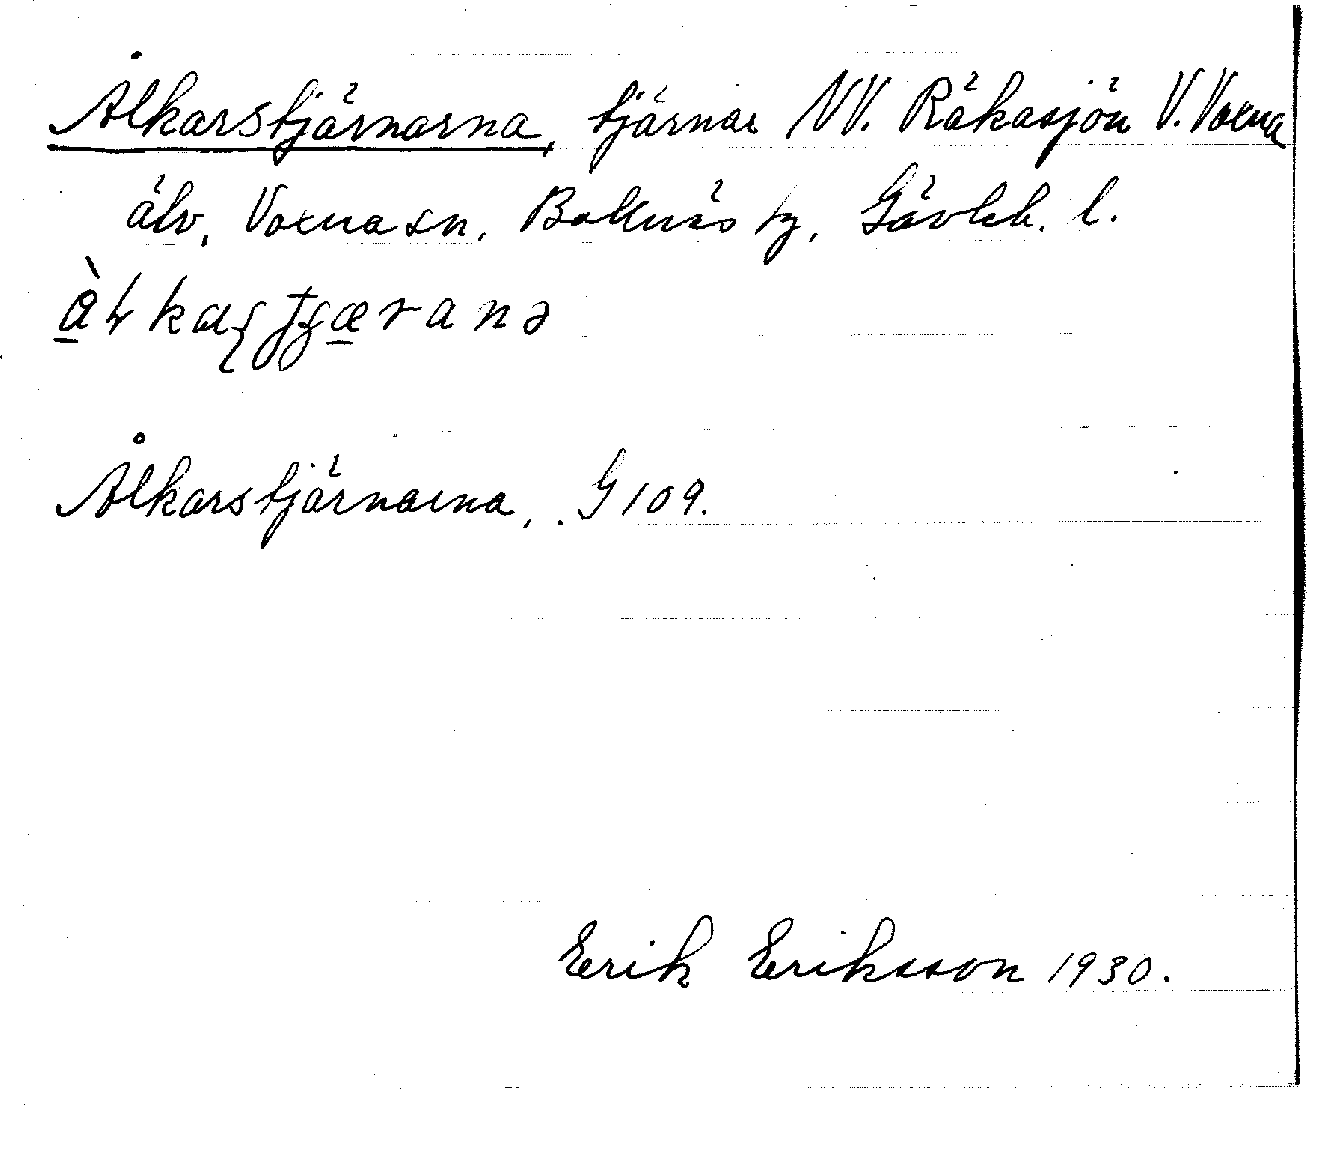 Ålkarstjärnarna, tjärnar NV. Räkasjön V. Voxna
älv, Voxna sn, Bollnäs tg, Gävleb. l.
Ålkarstjärnarna, G 109.
Erik Eriksson 1930.